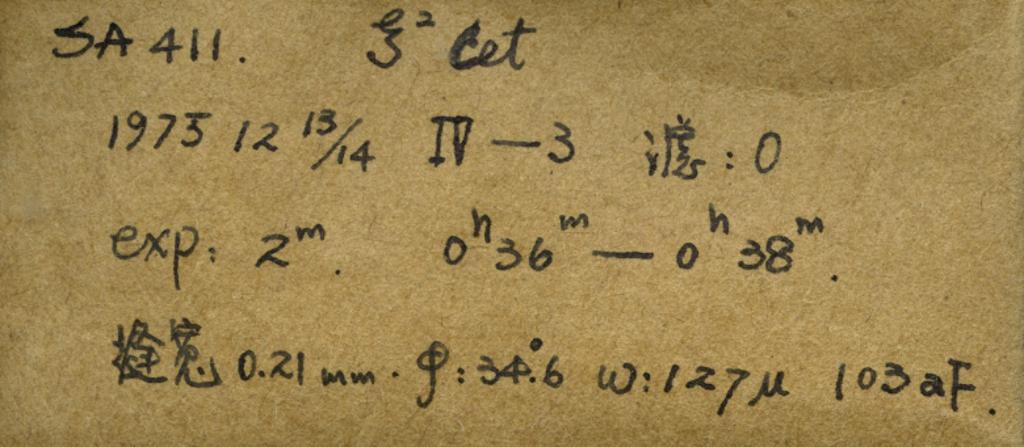 SA 411. ξ² Cet
1975 12 13/14 Ⅳ—3 滤:0
exp: 2ᵐ. 0ʰ36ᵐ — 0ʰ38ᵐ.
缝宽 0.21 mm. φ:34°.6 ω:127μ 103aF.